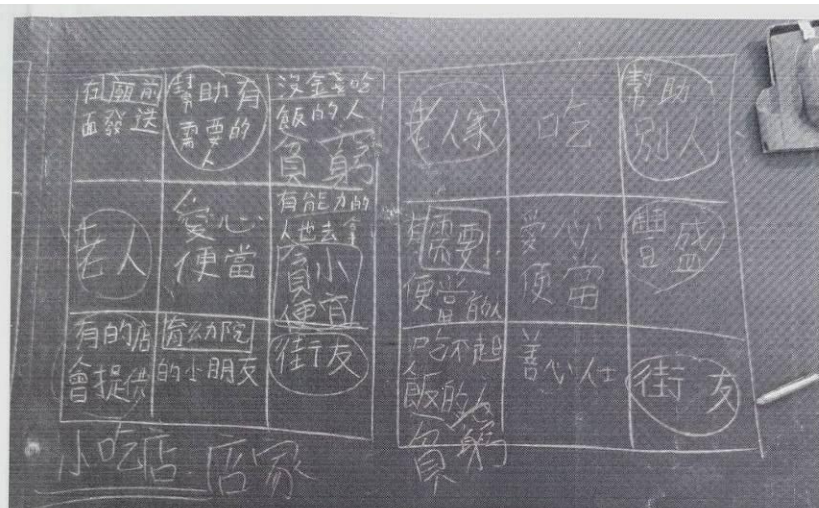 在廟前
面發送
幫助有
需要的
人
沒金錢吃
飯的人
貧窮
老人
愛心
便當
有能力的
人也去拿
貪小
便宜
有的店
會提供
育幼院
的小朋友
街友
小吃店 店家
老人家
吃
幫助
別人
有需要
便當的人
愛心
便當
豐盛
吃不起
飯的人
貧窮
善心人仕
街友